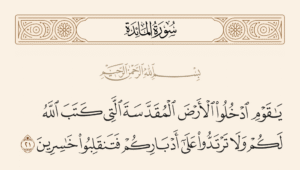 سُورَةُ المَائِدَة
بِسْمِ اللَّهِ الرَّحْمَٰنِ الرَّحِيمِ
يَٰقَوْمِ ٱدْخُلُوا۟ ٱلْأَرْضَ ٱلْمُقَدَّسَةَ ٱلَّتِى كَتَبَ ٱللَّهُ
لَكُمْ وَلَا تَرْتَدُّوا۟ عَلَىٰٓ أَدْبَارِكُمْ فَتَنقَلِبُوا۟ خَٰسِرِينَ ٢١